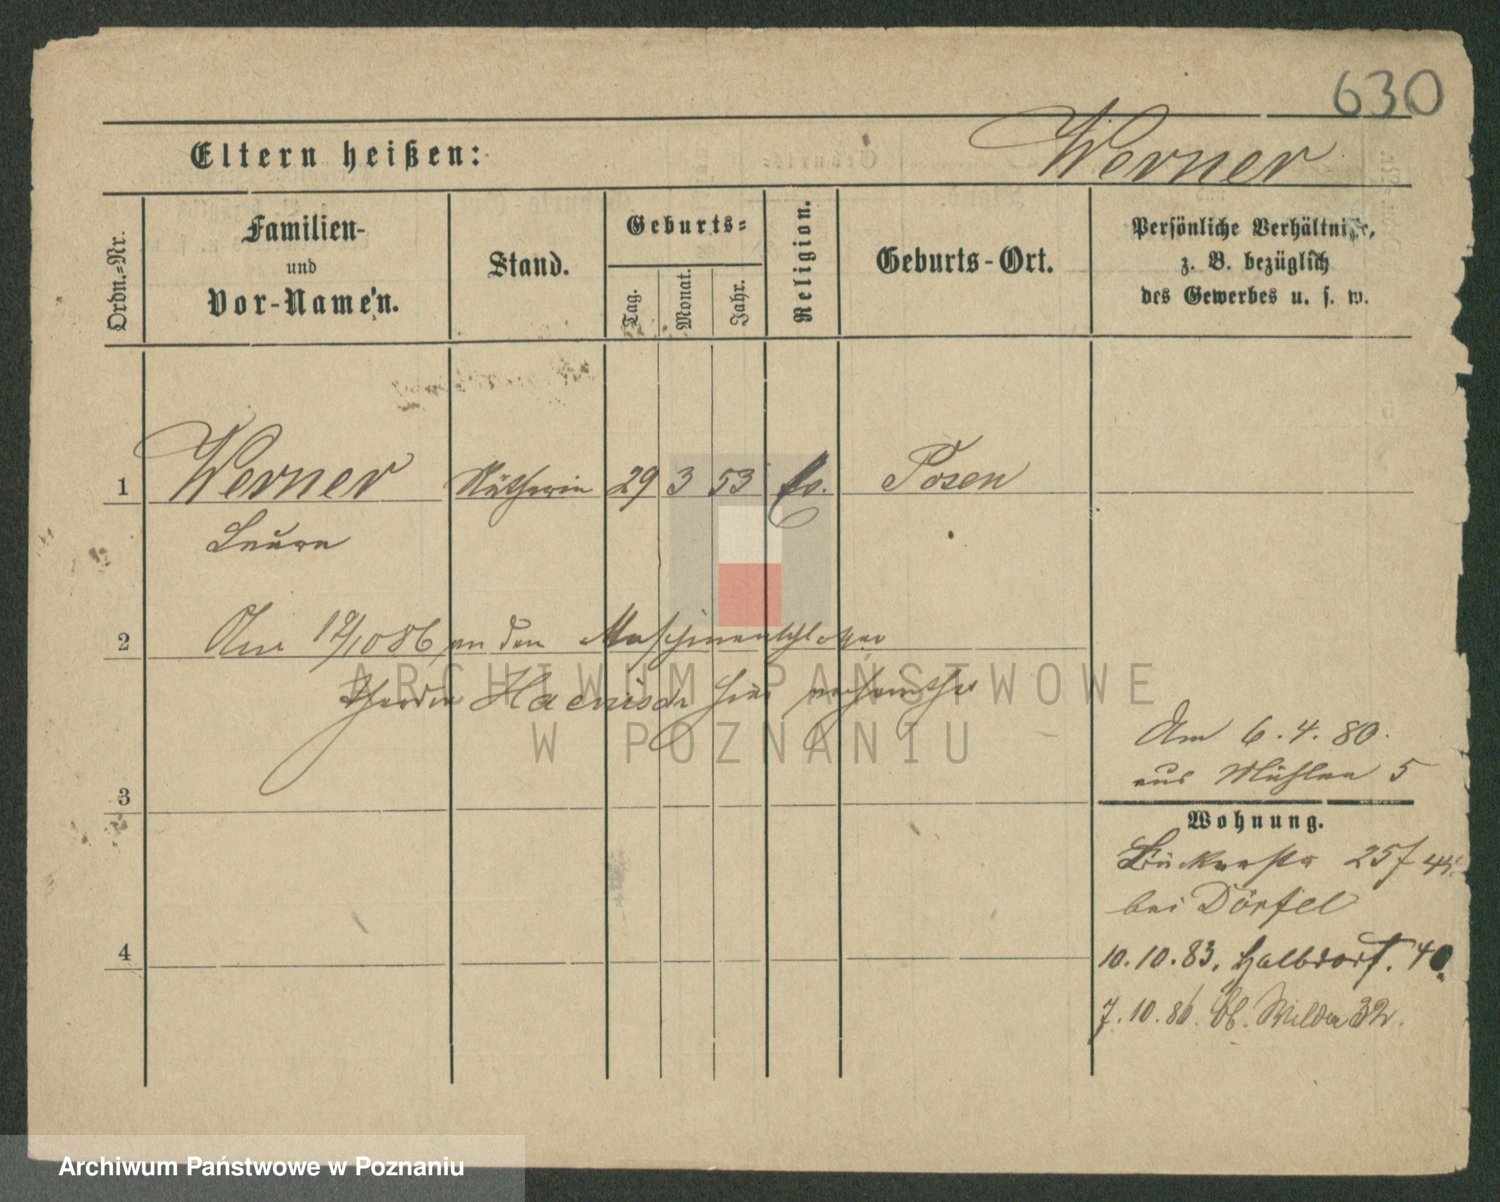 630
Eltern heißen: Werner
Ordn.-Nr.
Familien-
und
Vor-Namen.
Stand.
Geburts-
Tag.
Monat.
Jahr.
Religion.
Geburts-Ort.
Persönliche Verhältnisse,
z. B. bezüglich
des Gewerbes u. s. w.
1 Werner Nätherin 29 3 53 Posen
Laura
2 Am 19/10 86 an den Maschinenschlosser
Haenisch hier verheirathet
3
Am 6. 4. 80.
aus Mühlen 5
Wohnung.
Bäckerstr 25
bei Dörfel
4
10. 10. 83. Halbdorf. 40
7. 10. 86. Ob. Wilda 32.
ARCHIWUM PAŃSTWOWE
W POZNANIU
Archiwum Państwowe w Poznaniu